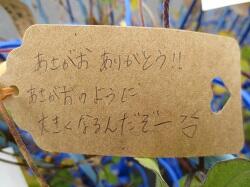 あさがお ありがとう!!
あさがおのように
大きくなるんだぞー